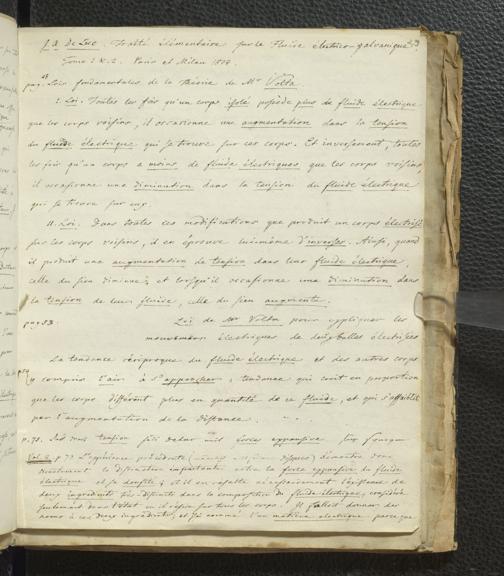 J. A. De Luc. Traité élémentaire sur le Fluide électrico-galvanique
Tome 1 & 2. Paris et Milan 1804.
pag. Loix fondamentales de la théorie de Mr Volta.
I. Loi. Toutes les fois qu'un corps isolé possède plus de fluide électrique
que les corps voisins, il occasionne une augmentation dans la tension
du fluide électrique qui se trouve sur ces corps. Et inversement, toutes
les fois qu'un corps a moins de fluide électriques que les corps voisins
il occasionne une diminution dans la tension du fluide électrique
qui se trouve sur eux.
II. Loi. Dans toutes ces modifications que produit un corps électrisé
sur les corps voisins, il en éprouve luimême d'inverses. Ainsi, quand
il produit une augmentation de tension dans leur fluide électrique,
celle du sien diminue; et lorsqu'il occasionne une diminution dans
la tension de leur fluide, celle du sien augmente.
pag 53. Loi de Mr Volta pour expliquer les
mouvemens électriques de deux balles électrisées
La tendance réciproque du fluide électrique et des autres corps
y compris l'air à s'approcher; tendance qui croit en proportion
que les corps diffèrent plus en quantité de ce fluide, et qui s'affaiblit
par l'augmentation de la distance.
p. 78. tension force expansive
Vol. 2. p. 77 L'expérience précédente démontre donc
directement la distinction importante entre la force expansive du fluide
électrique et sa densité; et il en résulte nécessairement l'existence de
deux ingrediens très distincts dans la composition du fluide électrique, considéré
seulement dans l'état où il réside sur tous les corps. Il falloit donner des
noms à ces deux ingrediens, et j'ai nommé l'un matière électrique parce que